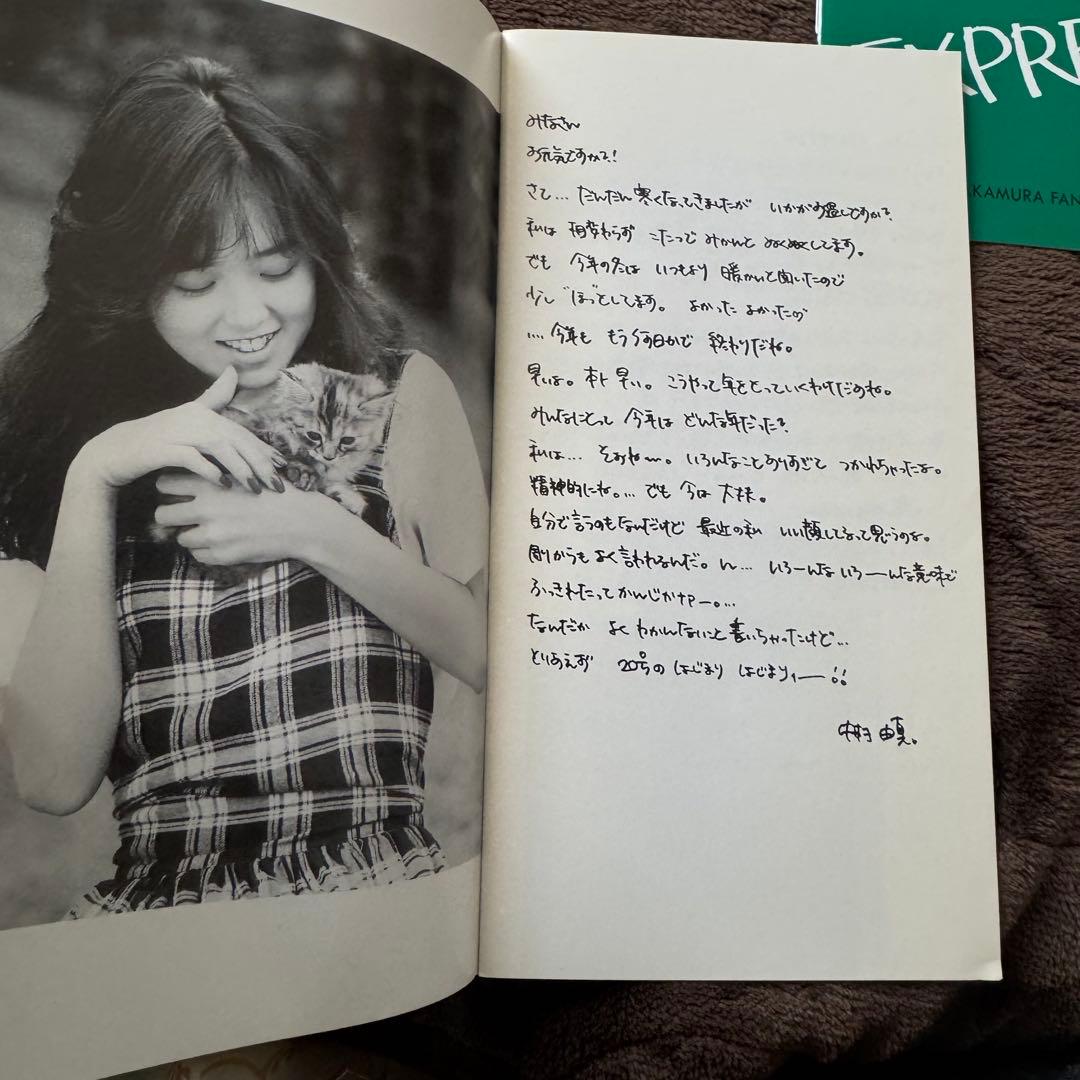 みなさん
お元気ですか？！
さて… だんだん寒くなってきましたが いかがお過しですか？
私は 相変わらず こたつで みかんと ぬくぬくしてます。
でも 今年の冬は いつもより 暖かいと聞いたので
少し"ほっ"としてます。 よかった よかったの
…今年も もう何日かで 終わりだね。
早いよ。本ト 早い。 こうやって年をとっていくわけだのね。
みんなにとって 今年は どんな年だった？
私は… そおね〜。 いろんなことありすぎて つかれちゃったよ。
精神的にね。… でも 今は 大丈夫。
自分で言うのもなんだけど 最近の私 いい顔してるって思うのよ。
周りからも よく言われるんだ。ん… いろーんな いろ──んな意味で
ふっきれたって かんじかナァー。…
なんだか よくわかんないこと書いちゃったけど…
とりあえず 20号の はじまり はじまりィ──!!
中村 由真。
EXPRE
AKAMURA FAN